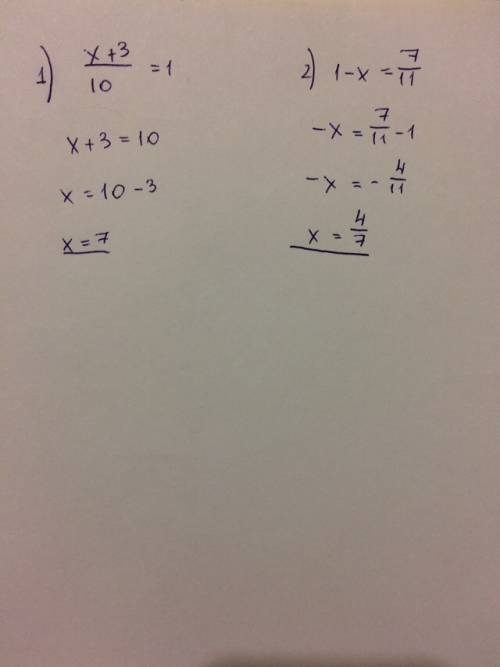 1) (x+3)/10 = 1
x+3 = 10
x = 10 - 3
x = 7
2) 1-x = 7/11
-x = 7/11 - 1
-x = - 4/11
x = 4/7